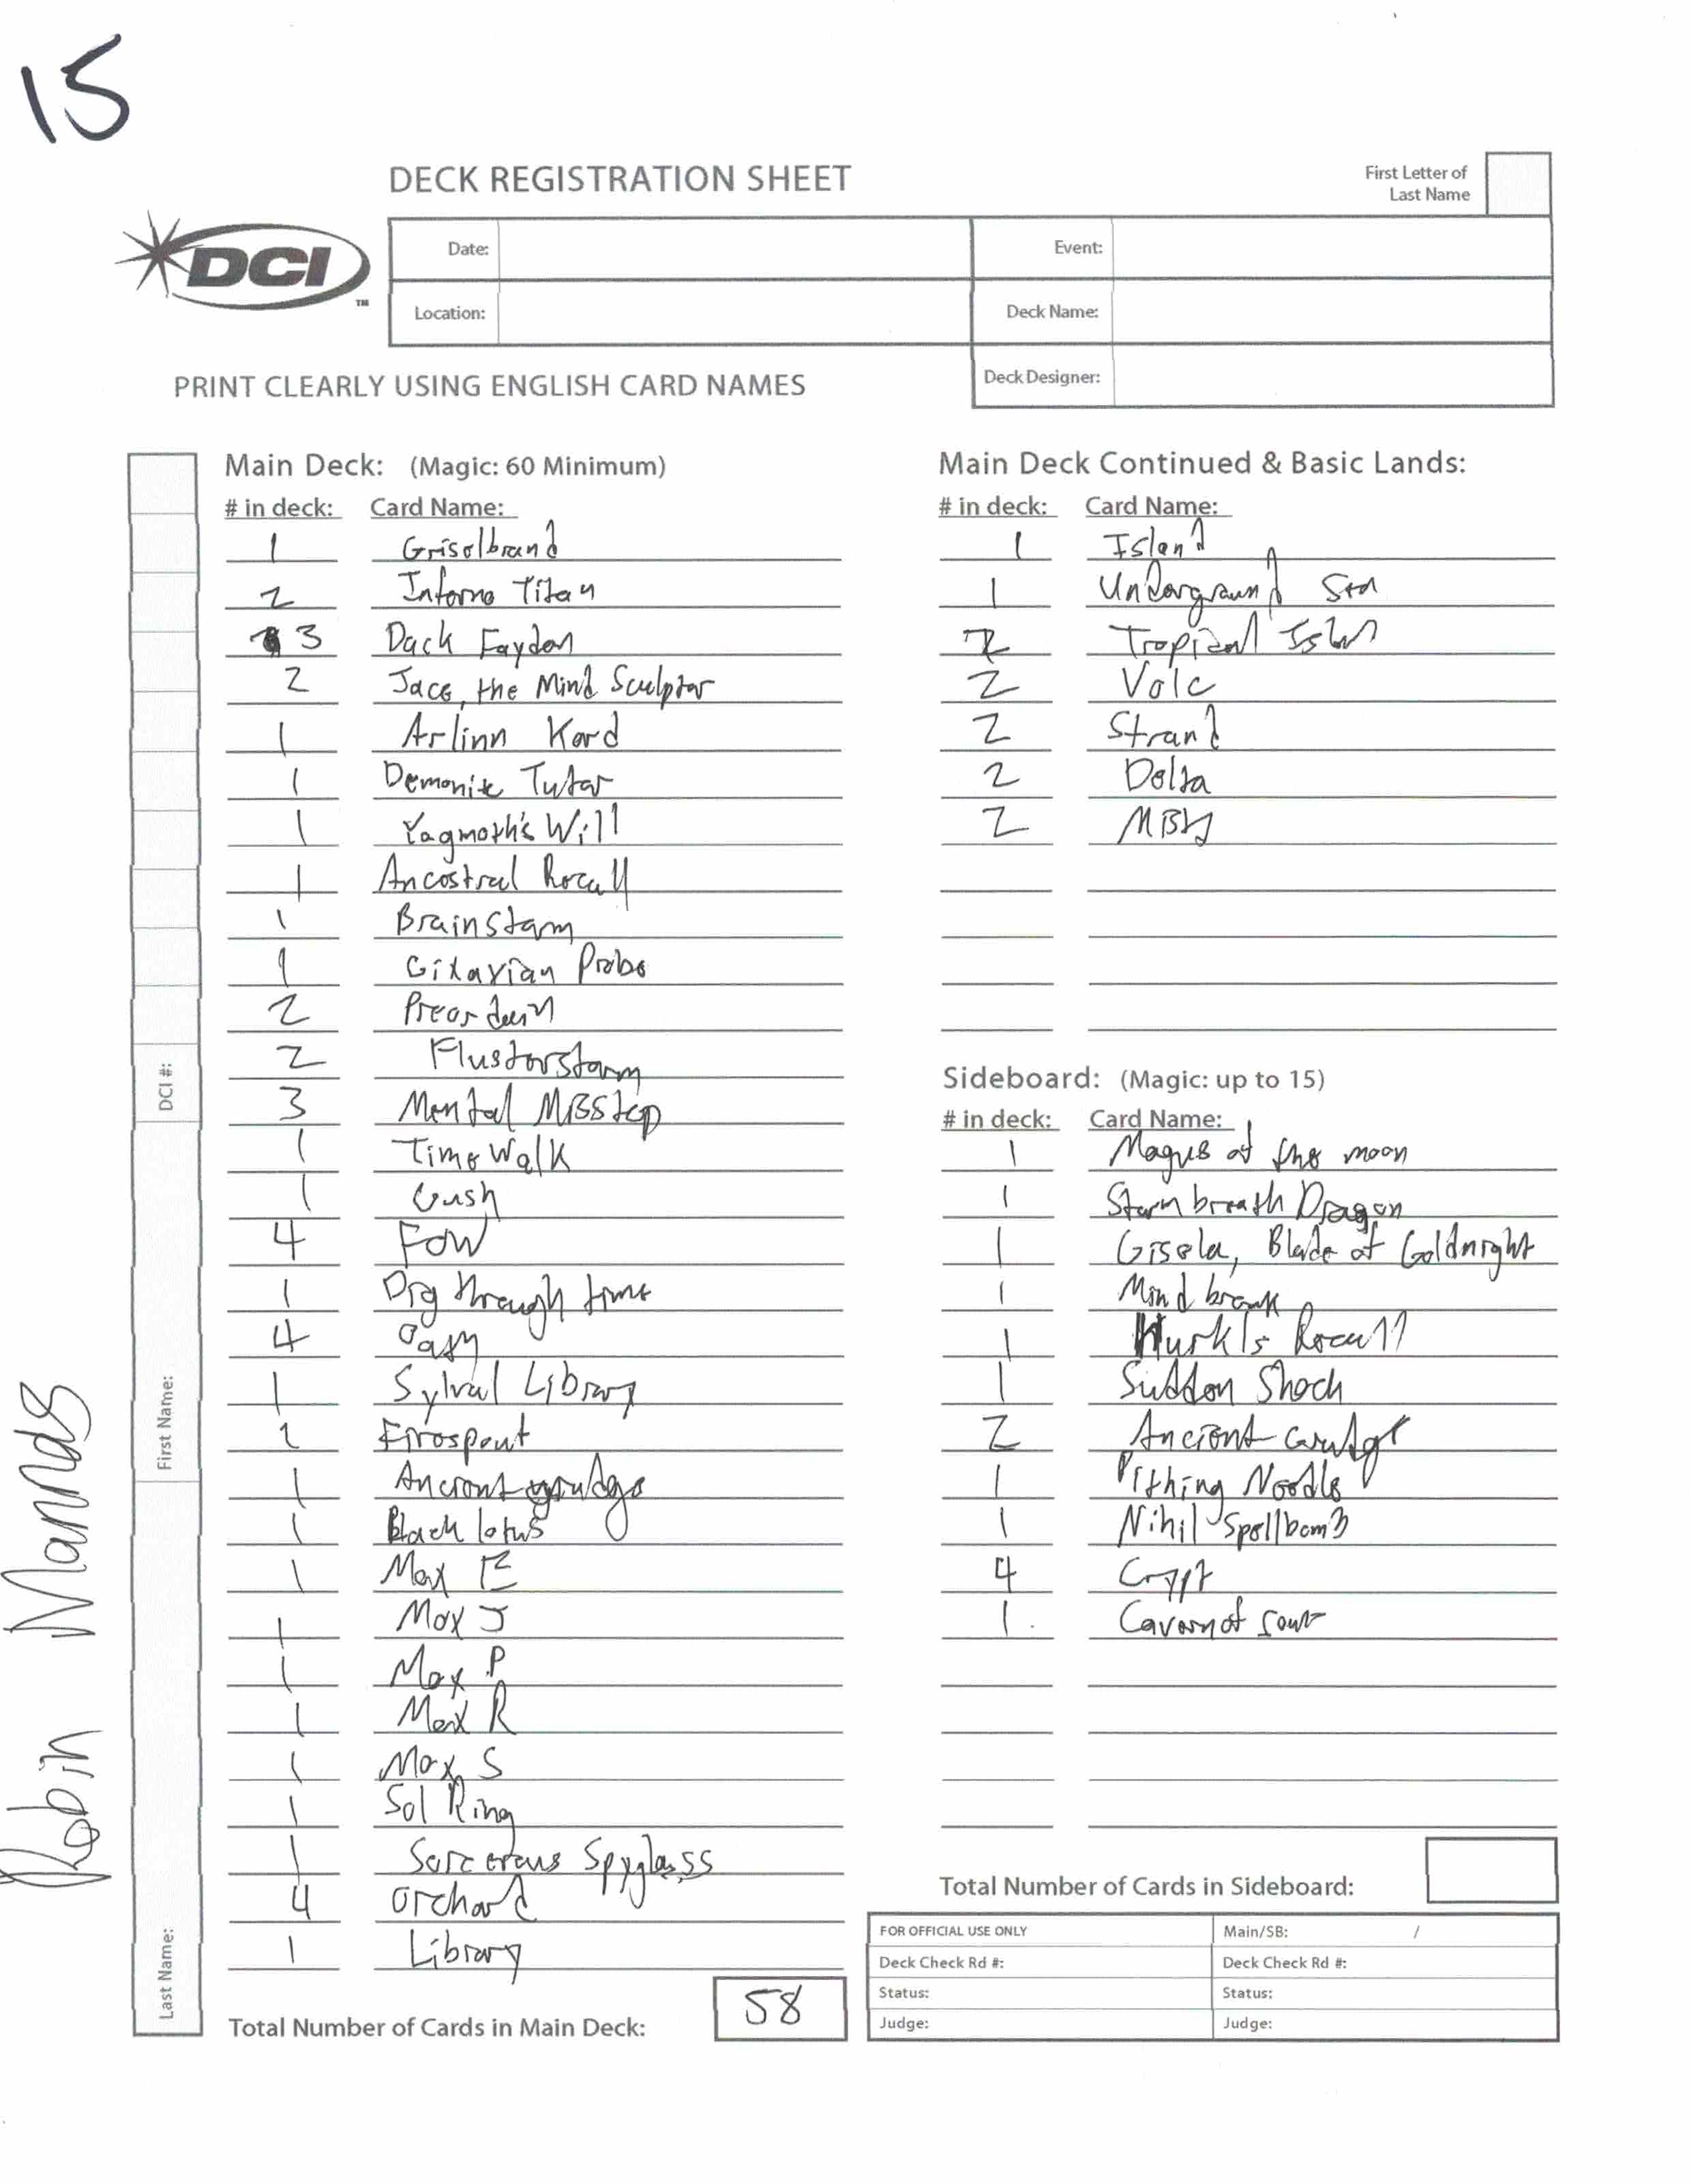 15
DECK REGISTRATION SHEET
First Letter of
Last Name
DCI
TM
Date:
Event:
Location:
Deck Name:
PRINT CLEARLY USING ENGLISH CARD NAMES
Deck Designer:
Main Deck: (Magic: 60 Minimum)
# in deck: Card Name:
1 Griselbrand
2 Inferno Titan
3 Dack Fayden
2 Jace, the Mind Sculptor
1 Arlinn Kord
1 Demonic Tutor
1 Yagmoth's Will
1 Ancestral Recall
1 Brainstorm
1 Gitaxian Probe
2 Preordain
2 Flusterstorm
3 Mental Misstep
1 Time Walk
1 Gush
4 FOW
1 Dig through time
4 Oath
1 Sylvan Library
1 Firespout
1 Ancient grudge
1 Black lotus
1 Mox E
1 Mox J
1 Mox P
1 Mox R
1 Mox S
1 Sol Ring
1 Sorcerous Spyglass
4 Orchard
1 Library
Total Number of Cards in Main Deck: 58
Main Deck Continued & Basic Lands:
# in deck: Card Name:
1 Island
1 Underground Sea
2 Tropical Island
2 Volc
2 Strand
2 Delta
2
Sideboard: (Magic: up to 15)
# in deck: Card Name:
1 Magus of the moon
1 Stormbreath Dragon
1 Gisela, Blade of Goldnight
1 Mindbreak
1 Hurkl's Recall
1 Sudden Shock
2 Ancient Grudge
1 Pithing Needle
1 Nihil Spellbomb
4 Crypt
1 Cavern of Souls
Total Number of Cards in Sideboard:
FOR OFFICIAL USE ONLY
Main/SB: /
Deck Check Rd #:
Deck Check Rd #:
Status:
Status:
Judge:
Judge:
DCI #:
First Name:
Last Name:
Robin Mannds